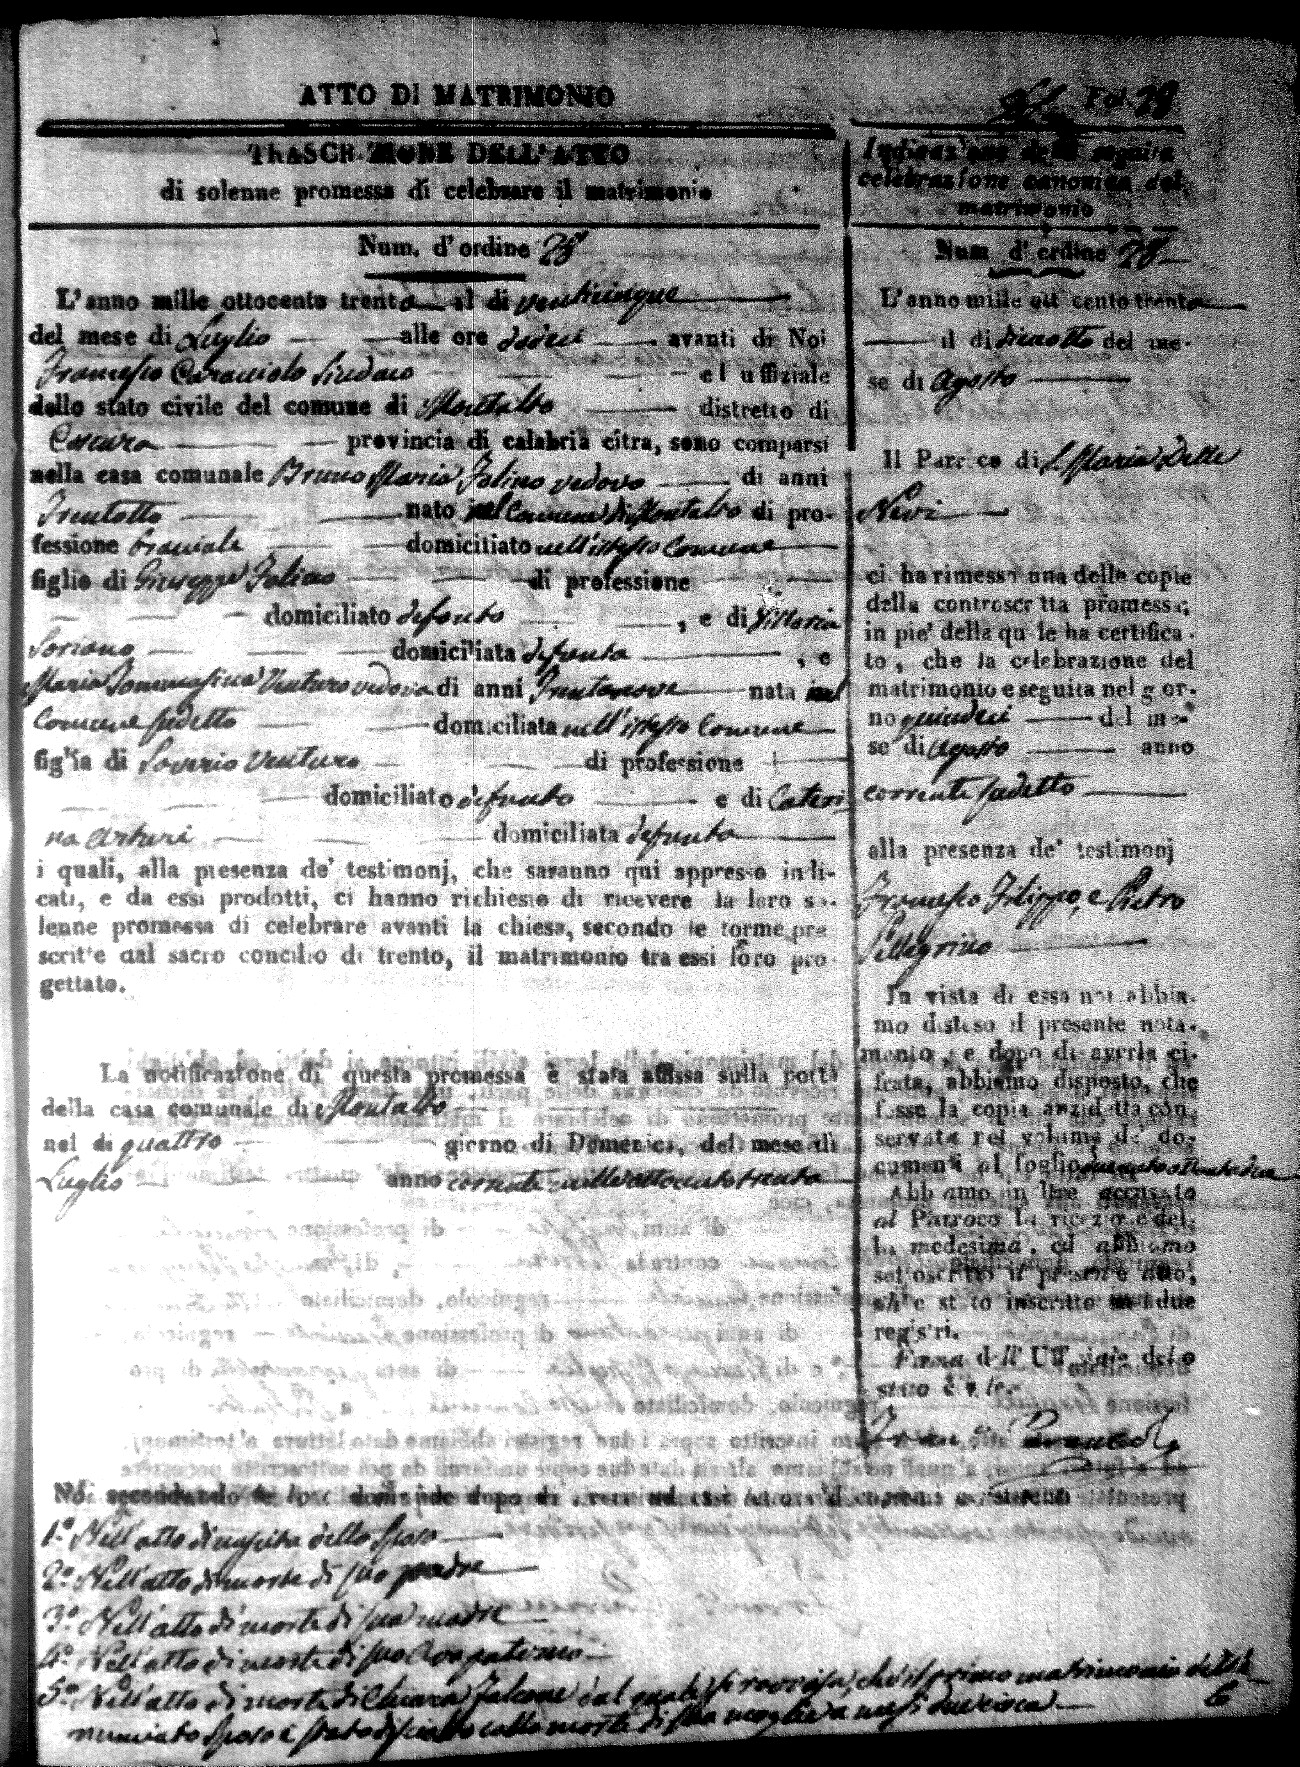 ATTO DI MATRIMONIO
Fol. 28
TRASCRIZIONE DELL'ATTO
di solenne promessa di celebrare il matrimonio
Num. d'ordine 28
L'anno mille ottocento trenta al di venticinque
del mese di Luglio alle ore dieci avanti di Noi
Francesco Caracciolo Sindaco ed uffiziale
dello stato civile del comune di Montalto distretto di
Cosenza provincia di calabria citra, sono comparsi
nella casa comunale Bruno Maria Folino vedovo di anni
Trentotto nato nel Comune di Montalto di pro-
fessione bracciale domiciliato nell'istesso Comune
figlio di Giuseppe Folino di professione
domiciliato defonto, e di Vittoria
Soriano domiciliata defonta, e
Maria Venturo vedova di anni Trentanove nata nel
Comune sudetto domiciliata nell'istesso Comune
figlia di Saverio Venturo di professione
domiciliato defunto e di Cateri
na Arturi domiciliata defunta
i quali, alla presenza de' testimonj, che saranno qui appresso indi-
cati, e da essi prodotti, ci hanno richiesto di ricevere la loro so-
lenne promessa di celebrare avanti la chiesa, secondo le forme pre
scritte dal sacro concilio di trento, il matrimonio tra essi loro pro-
gettato.
La notificazione di questa promessa è stata affissa sulla porta
della casa comunale di Montalto
nel di quattro giorno di Domenica, del mese di
Luglio anno corrente milleottocentotrenta
Noi secondando le loro domande dopo di aver ad essi
1.º Nell'atto di nascita dello Sposo
2.º Nell'atto di morte di suo padre
3.º Nell'atto di morte di sua madre
4.º Nell'atto di morte di suo Avo paterno
5.º Nell'atto di morte di Chiara Falcone dal quale si ravvisa, che il primo matrimonio
nunciato Sposo è stato disciolto colla morte di sua moglie a mesi
Indicazione della seguita
celebrazione canonica del
matrimonio
Num d'ordine 28
L'anno mille ott cento trenta
il di diciotto del me-
se di Agosto
Il Parroco di S. Maria Delle
Nevi
ci ha rimessa una delle copie
della controscritta promessa;
in pie' della quale ha certifica-
to, che la celebrazione del
matrimonio e seguita nel gior-
no quindeci del me
se di Agosto anno
corrente sudetto
alla presenza de' testimonj
Francesco Filippo, e Pietro
Pellegrino
In vista di essa noi abbia-
mo disteso il presente nota-
mento, e dopo di averla ci-
frata, abbiamo disposto, che
fosse la copia anzidetta con-
servata nel volume de' do-
cumenti al foglio
Abbiamo in oltre accusato
al Parroco la ricezione del-
la medesima, ed abbiamo
sottoscritto il presente atto,
ch'è stato inscritto ne i due
registri.
Firma dell' Uffiziale dello
stato civile